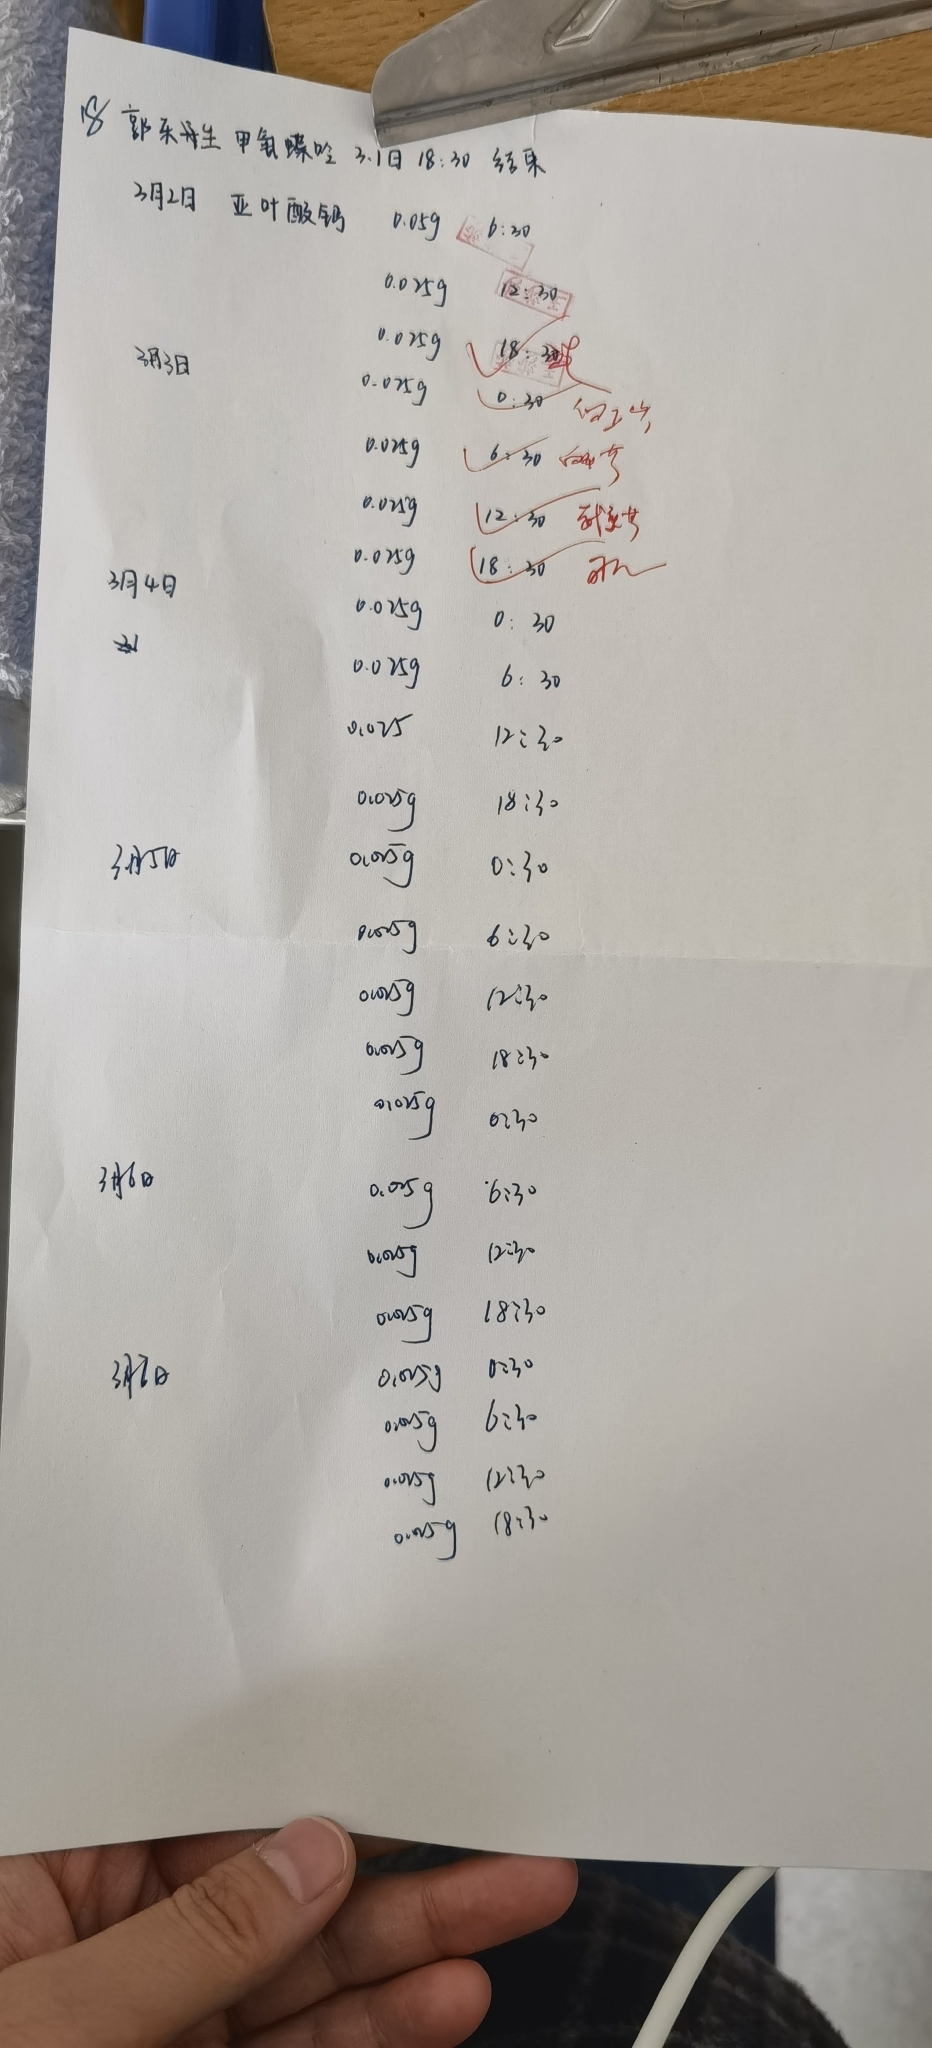 18 郭东海生 甲氨蝶呤 3.1日 18:30 结束
3月2日 亚叶酸钙 0.05g 6:30
0.025g 12:30
0.025g 18:30
3月3日 0.025g 0:30
0.025g 6:30
0.025g 12:30
0.025g 18:30
3月4日 0.025g 0:30
0.025g 6:30
0.025 12:30
0.025g 18:30
3月5日 0.025g 0:30
0.025g 6:30
0.025g 12:30
0.025g 18:30
0.025g 0:30
3月6日 0.025g 6:30
0.025g 12:30
0.025g 18:30
0.025g 0:30
0.025g 6:30
0.025g 12:30
0.025g 18:30